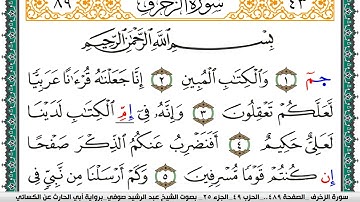 ٨٩ سورة الزخرف ٤٣
بِسْمِ اللَّهِ الرَّحْمَٰنِ الرَّحِيمِ
حمٓ ١ وَالْكِتَابِ الْمُبِينِ ٢ إِنَّا جَعَلْنَاهُ قُرْءَانًا عَرَبِيًّا
لَعَلَّكُمْ تَعْقِلُونَ ٣ وَإِنَّهُ فِي إِمِّ الْكِتَابِ لَدَيْنَا
لَعَلِيٌّ حَكِيمٌ ٤ أَفَنَضْرِبُ عَنكُمُ الذِّكْرَ صَفْحًا
إِن كُنتُمْ قَوْمًا مُّسْرِفِينَ ٥ وَكَمْ أَرْسَلْنَا مِن نَّبِيٍّ فِي
سورة الزخرف . الصفحة ٤٨٩.. الحزب ٤٩. الجزء ٢٥ . بصوت الشيخ عبد الرشيد صوفي . برواية أبي الحارث عن الكسائي